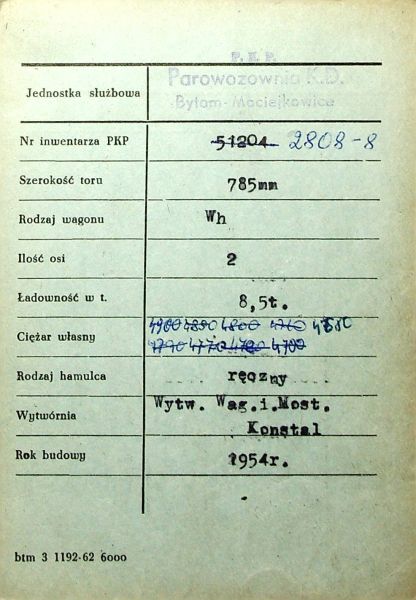 P. K. P.
Parowozownia K.D.
Jednostka służbowa
Bytom-Maciejkowice
Nr inwentarza PKP 51204 2808-8
Szerokość toru 785mm
Rodzaj wagonu Wh
Ilość osi 2
Ładowność w t. 8,5t.
4900 4890 4800
Ciężar własny
4770 4700
Rodzaj hamulca ręczny
Wytw. Wag.i.Most.
Wytwórnia
Konstal
Rok budowy 1954r.
btm 3 1192-62 6000